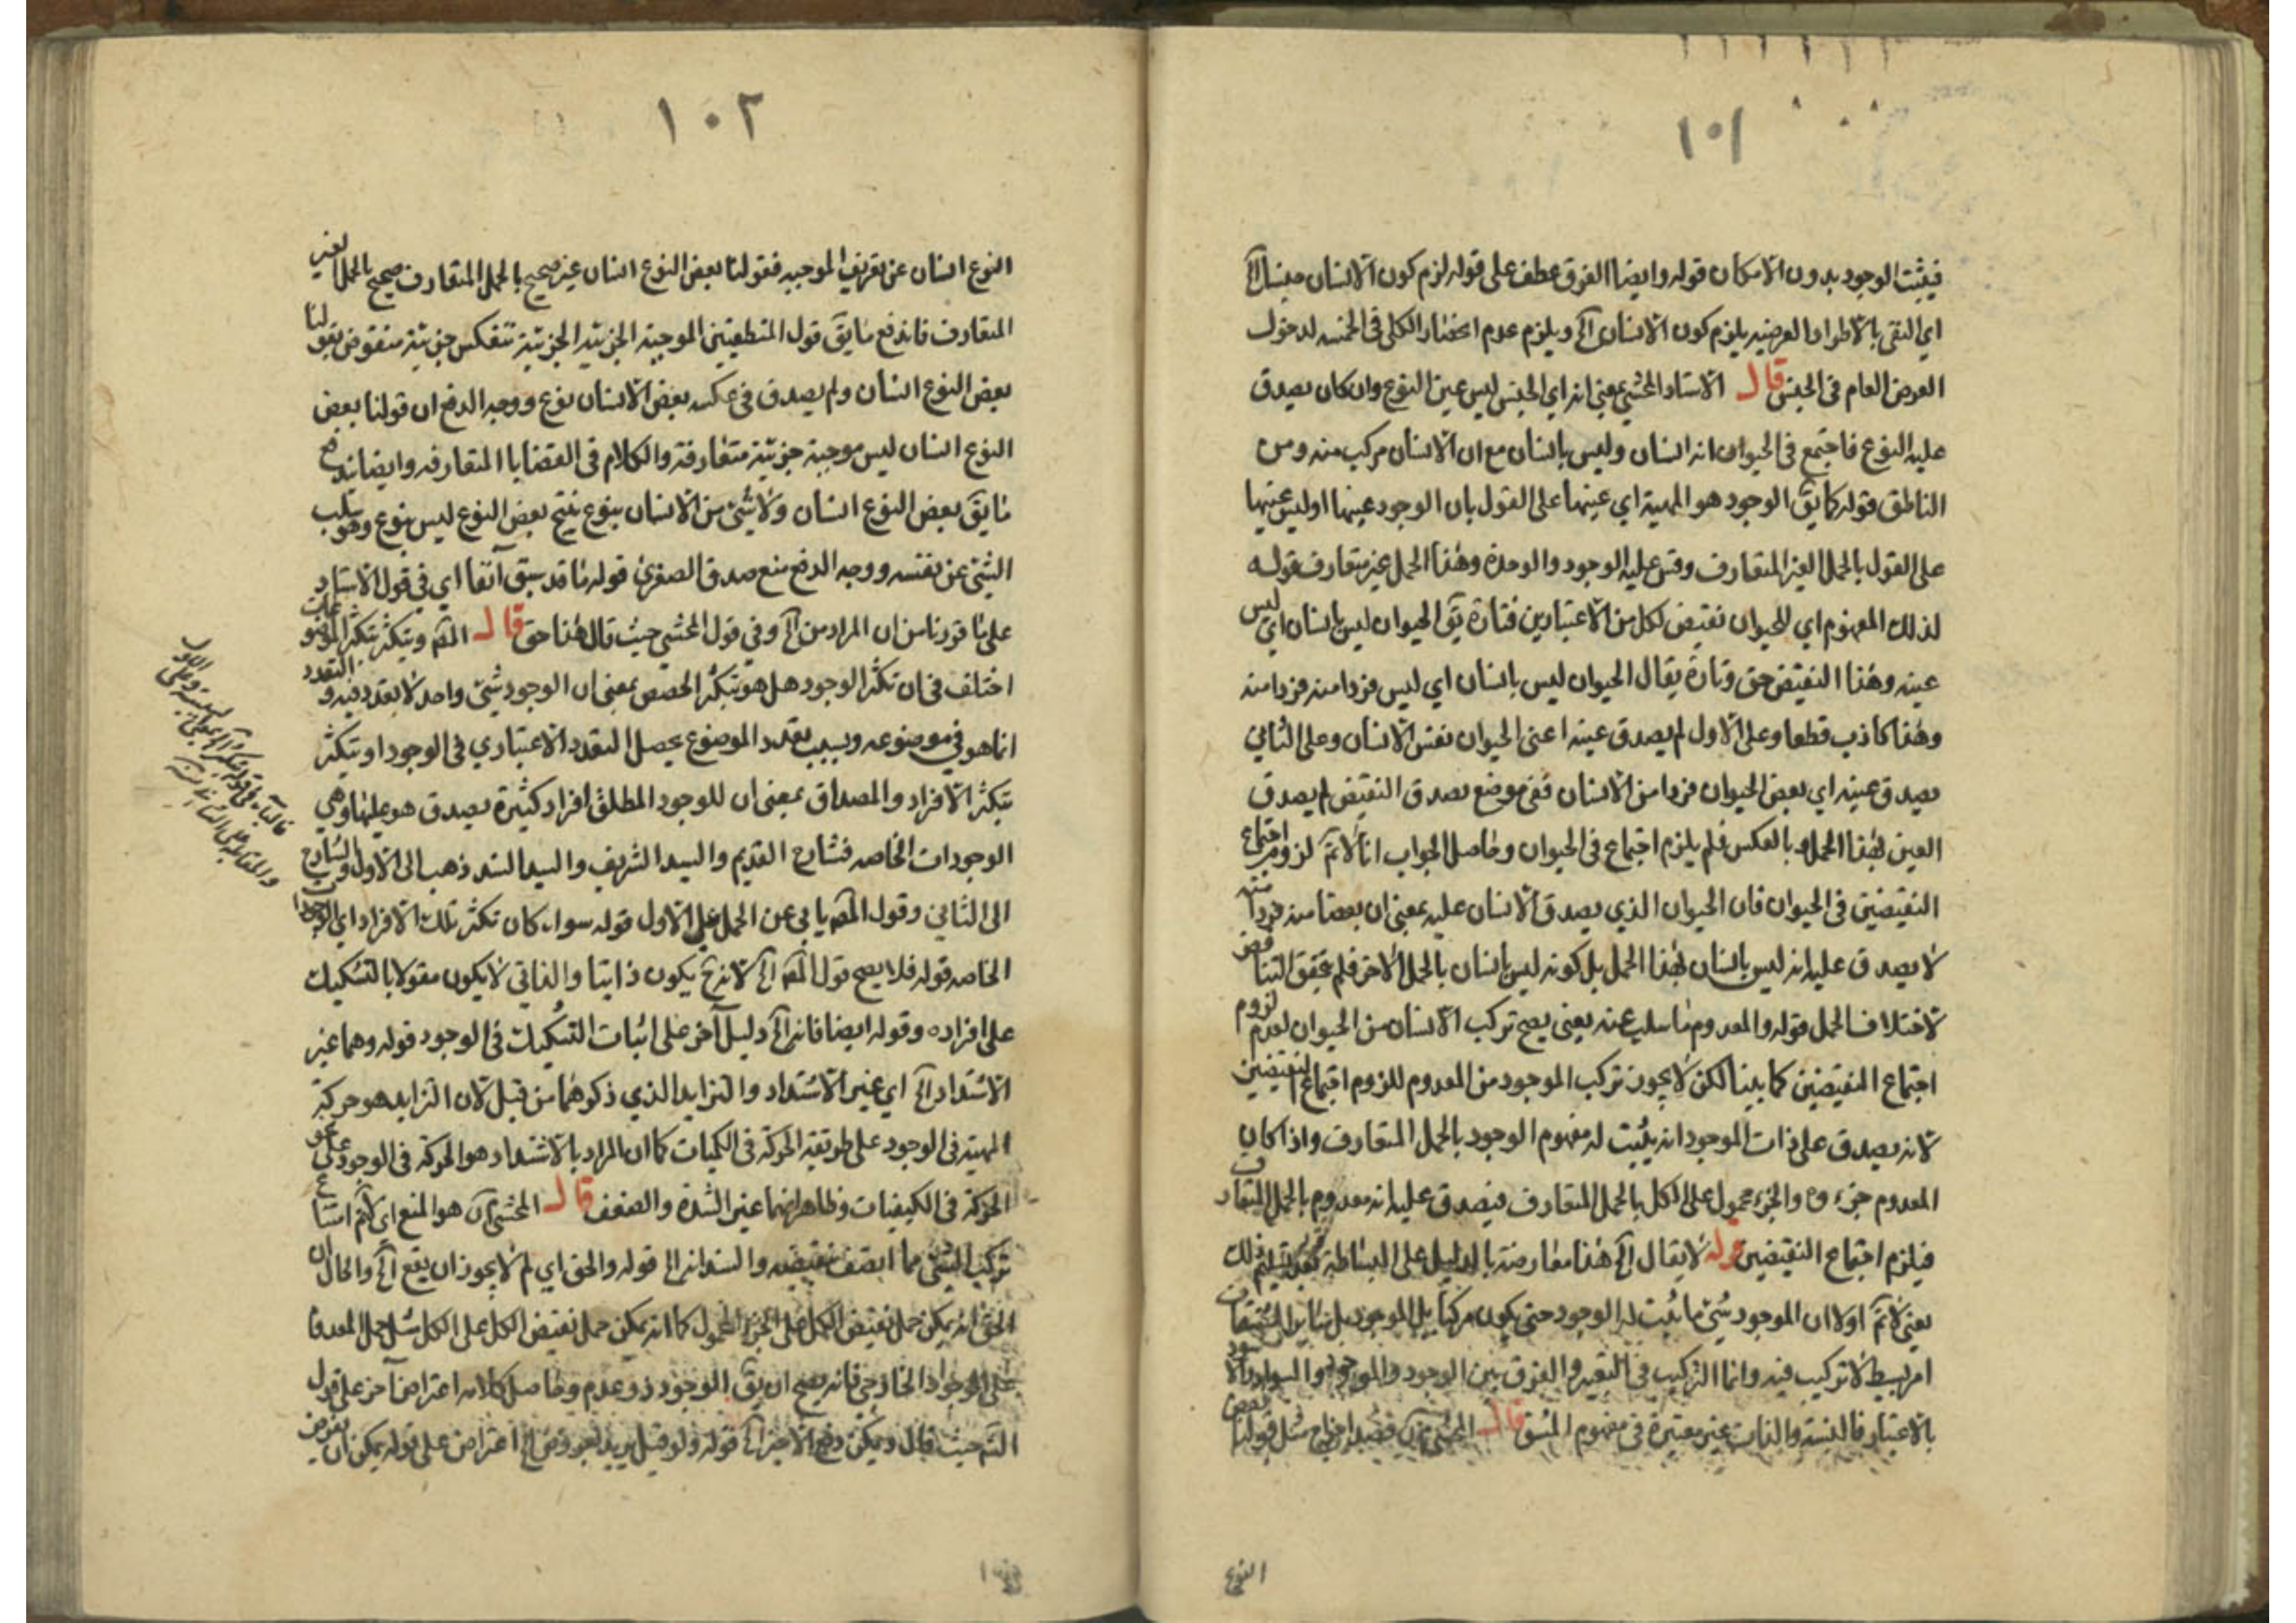 ١٠١
فيثبت الوجود بدون الامكان قوله وايضا الفرق عطف على قوله لزم كون الانسان جنسا الخ
اي النقي بالاطراد العرضيه يلزم كون الانسان الخ ويلزم عدم انحصار الكلي في الخمسه لدخول
العرض العام في الجنس قال الاستاد المحشي يعني انه اي الجنس ليس عين النوع وان كان يصدق
عليه النوع فاجتمع في الحيوان انه انسان وليس بانسان مع ان الانسان مركب منه ومن
الناطق قوله كما يق الوجود هو المهية اي عينها على القول بان الوجود عينها او ليس عينها
على القول بالحمل الغير المتعارف وقس عليه الوجود والوحدة وهذا الحمل غير متعارف قوله
لذلك المفهوم اي للحيوان نقيض لكل من الاعتبارين فتارة يق الحيوان ليس بانسان اي ليس
عينه وهذا النقيض حق وتارة يقال الحيوان ليس بانسان اي ليس فردا منه فردا منه
وهذا كاذب قطعا وعلى الاول لم يصدق عينه اعني الحيوان نفس الانسان وعلى الثاني
يصدق عينه اي بعض الحيوان فردا من الانسان ففي موضع يصدق النقيض لم يصدق
العين بهذا الحمل وبالعكس فلم يلزم اجتماع في الحيوان وحاصل الجواب انا لا نم لزوم اجتماع
النقيضين في الحيوان فان الحيوان الذي يصدق الانسان عليه بمعنى ان بعضا منه فردا منه
لا يصدق عليه انه ليس بانسان بهذا الحمل بل كونه ليس بانسان بالحمل الاخر فلم يتحقق التناقض
لاختلاف الحمل قوله والمعدوم ما سلب عنه يعني يصح تركب الانسان من الحيوان لعدم لزوم
اجتماع النقيضين كما بينا لكن لا يجوز تركب الموجود من المعدوم للزوم اجتماع النقيضين
لانه يصدق على ذات الموجود انه يثبت له مفهوم الوجود بالحمل المتعارف واذا كان
المعدوم جزءه والجزء محمول على الكل بالحمل المتعارف فيصدق عليه انه معدوم بالحمل المتعارف
فيلزم اجتماع النقيضين قوله لا يقال الخ هذا معارضة بالدليل على البساطة ذلك
يعني لا نم اولا ان الموجود شيء ما يثبت له الوجود حتى يكون مركبا بل الموجود بل سائر المشتقات
امر بسيط لا تركيب فيه وانما التركيب في التعبير والفرق بين الوجود والموجود والسواد والاسود
بالاعتبار فالنسبة والذات غير معتبرة في مفهوم المشتق قال المحشي مثل قولنا بعض
النوع
١٠٢
النوع انسان عن تعريف الموجبه فقولنا بعض النوع انسان غير صحيح بالحمل المتعارف صحيح بالحمل الغير
المتعارف فاندفع ما يق قول المنطقيين الموجبة الجزئية الجزئية تنعكس جزئية منقوض بقولنا
بعض النوع انسان ولم يصدق في عكسه بعض الانسان نوع ووجه الدفع ان قولنا بعض
النوع انسان ليس موجبة جزئية متعارفة والكلام في القضايا المتعارفه وايضا يندفع
ما يق بعض النوع انسان ولا شئ من الانسان بنوع ينتج بعض النوع ليس بنوع وهو سلب
الشئ عن نفسه ووجه الدفع منع صدق الصغرى قوله ما قد سبق آنفا اي في قول الاستاد
على ما قررنا من ان المراد من الخ وفي قول المحشي حيث قال هذا حق قال المص ويتكثر بتكثر الموضوعات
اختلف في ان تكثر الوجود هل هو تكثر الحصص بمعنى ان الوجود شئ واحد لا تعدد فيه والتعدد
انما هو في موضوعه وبسبب تعدد الموضوع يحصل التعدد الاعتباري في الوجود او تكثر
بتكثر الافراد والمصداق بمعنى ان للوجود المطلق افراد كثيرة يصدق هو عليها وهي
الوجودات الخاصه فشارح القديم والسيد الشريف والسيد السند ذهب الى الاول والشارح
الى الثاني وقول المص يابى عن الحمل على الاول قوله سواء كان تكثر تلك الافراد اي الوجودات
الخاصه قوله فلا يصح قول المص الخ لانه ح يكون ذاتيا والذاتي لا يكون مقولا بالتشكيك
على افراده وقوله ايضا فانه الخ دليل آخر على اثبات التشكيك في الوجود قوله وهما غير
الاشتداد الخ اي غير الاشتداد والتزايد الذي ذكرهما من قبل لان التزايد هو حركة
المهية في الوجود على طريقة الحركة في الكميات كما ان المراد بالاشتداد هو الحركة في الوجود على نحو
الحركة في الكيفيات وظاهر انهما غير الشدة والضعف قال المحشي هو المنع اي لا نم امتناع
تركب الشئ مما اتصف بنقيضه والسند انه الخ قوله والحق اي لم لا يجوز ان يقع الخ والحال ان
الحق انه يمكن حمل نقيض الكل على الجزء المحمول كما انه يمكن حمل نقيض الكل على الكل مثل حمل المعدوم
على الموجود الخارجي فانه يصح ان يق الوجود ذو عدم وحاصل كلامه اعتراض آخر على قول
الش حيث قال ويمكن دفع الاخير الخ قوله ولو قيل يريد اعتراض على قوله يمكن ان